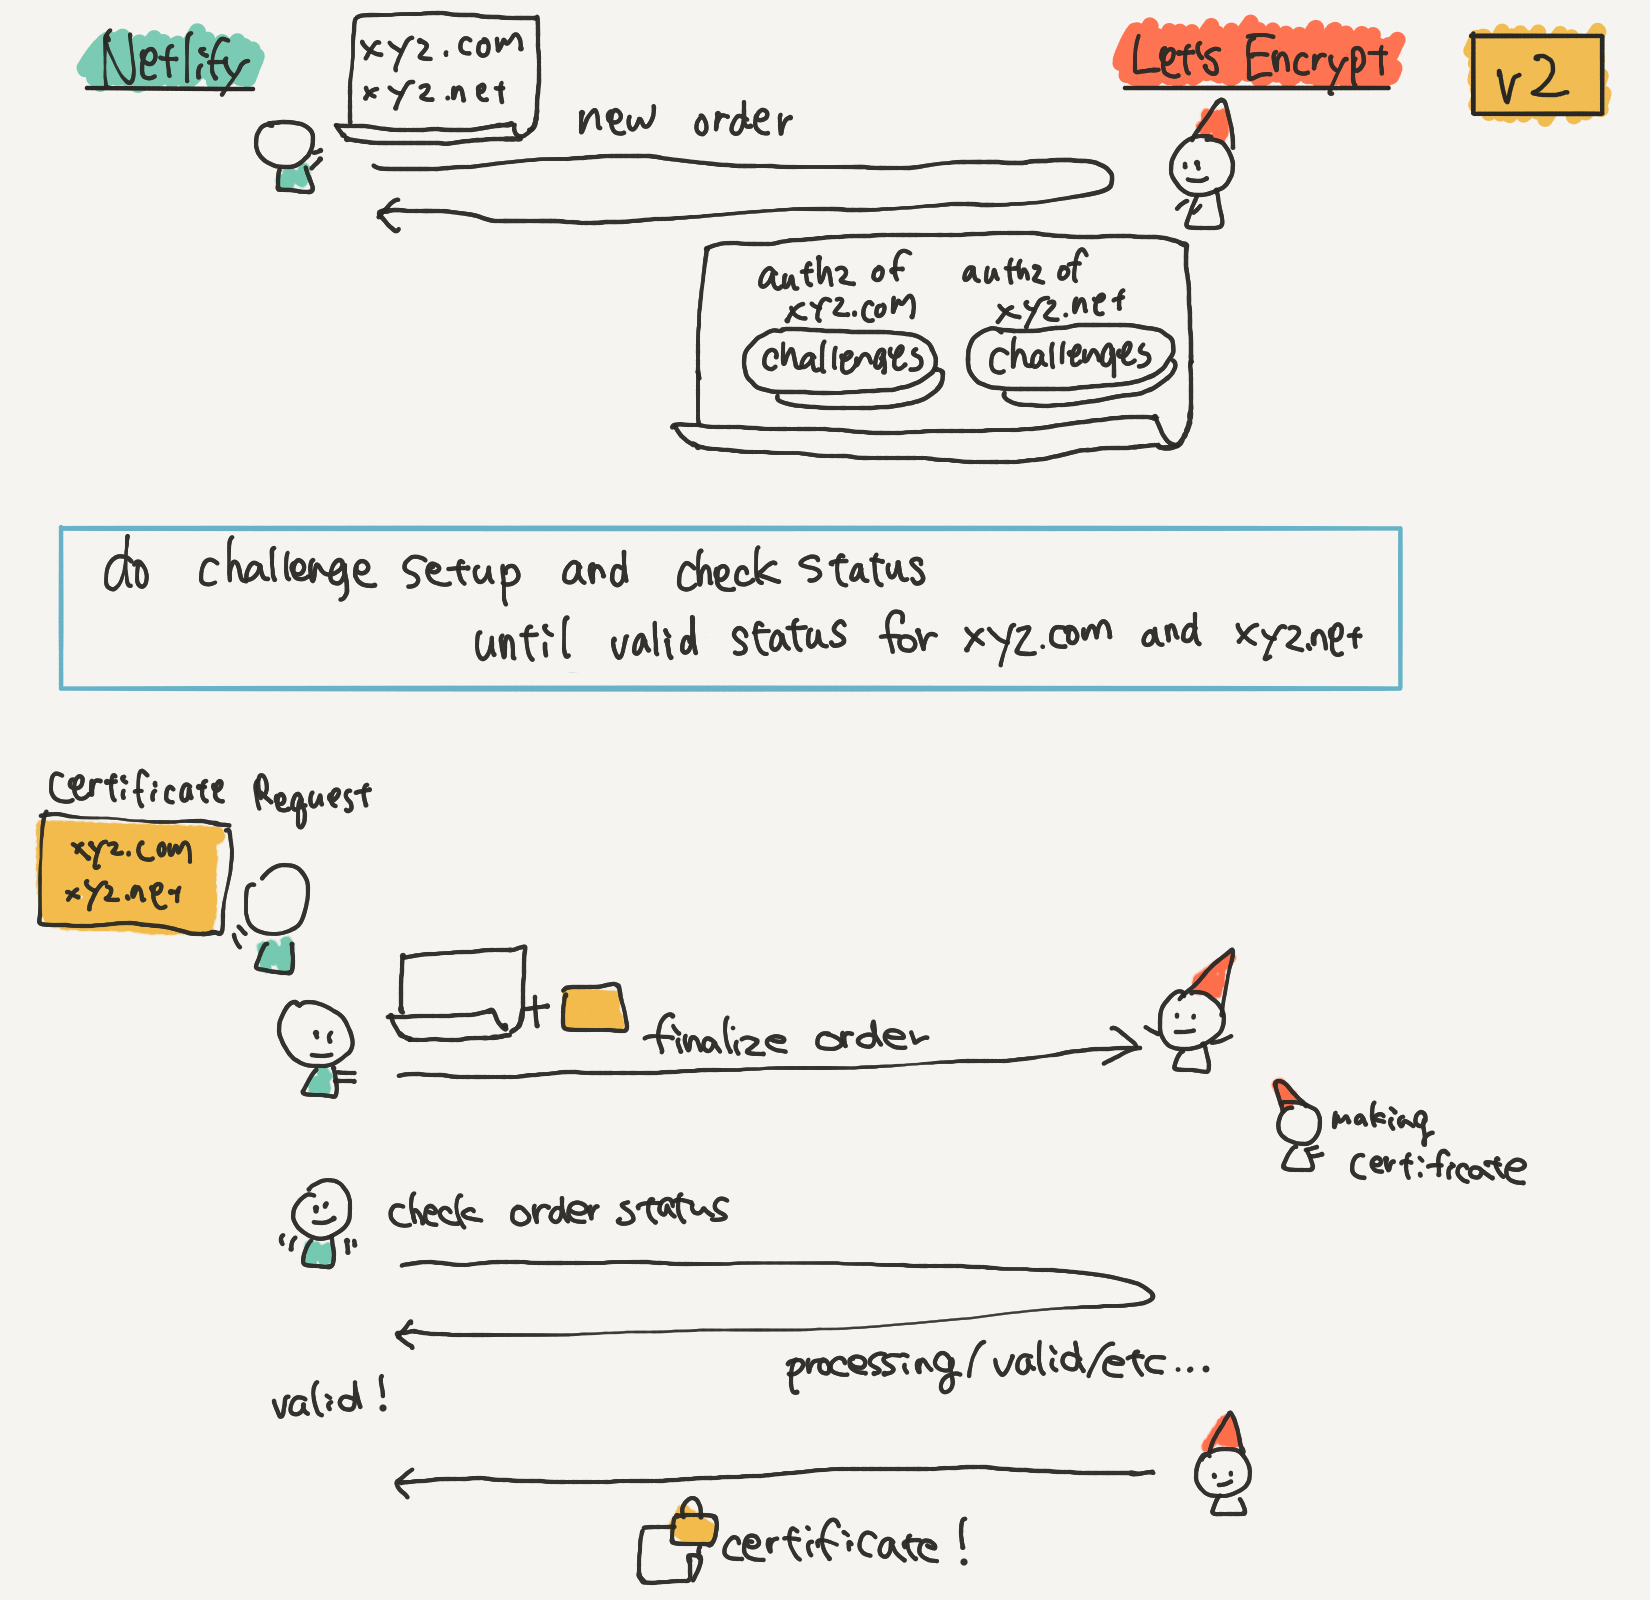 Netlify
xyz.com
xyz.net
Let's Encrypt
v2
new order
authz of
xyz.com
challenges
authz of
xyz.net
challenges
do challenge setup and check status
until valid status for xyz.com and xyz.net
Certificate Request
xyz.com
xyz.net
+
finalize order
making
certificate
check order status
processing/valid/etc...
valid!
certificate!